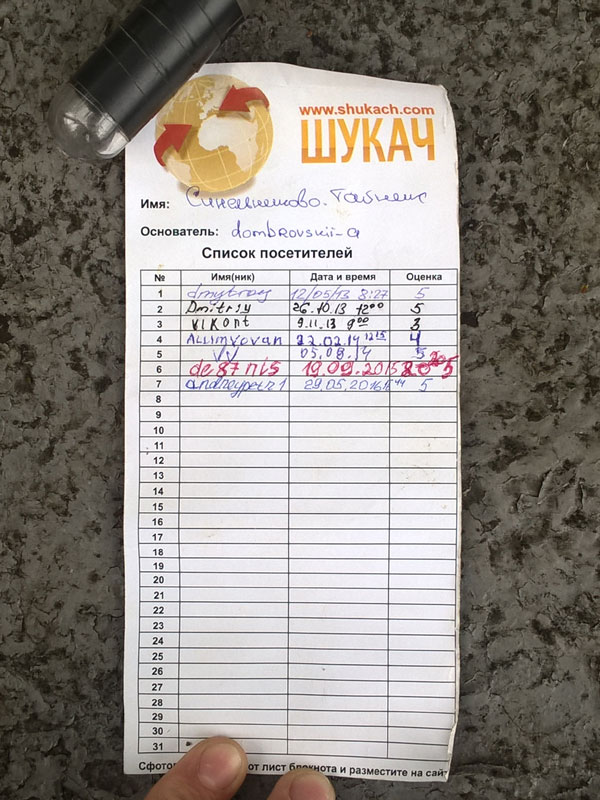 www.shukach.com
ШУКАЧ
Имя: Синельниково-Тайник
Основатель: dombrovskii-a
Список посетителей
№ Имя(ник) Дата и время Оценка
1 dmytroy 12/05/13 8:27 5
2 Dmitriy 26.10.13 12⁰⁰ 5
3 VIKont 9.11.13 9⁰⁰ 3
4 22.02.14 12¹⁵ 4
5 VV 05.08.14 5
6 de87nis 19.09.2015 5
7 andreypetr1 29.05.2016 5
8
9
10
11
12
13
14
15
16
17
18
19
20
21
22
23
24
25
26
27
28
29
30
31
от лист блокнота и разместите на